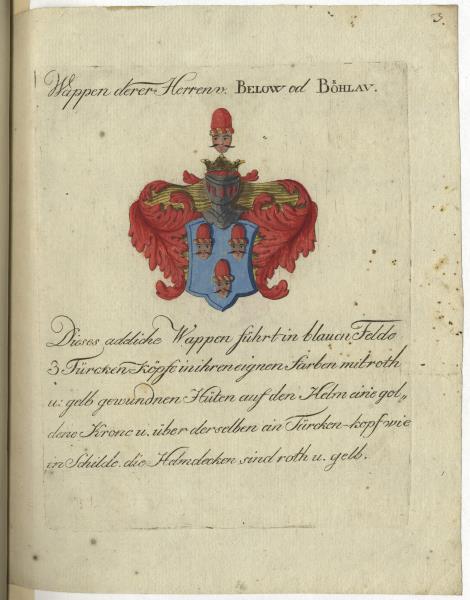 3.
Wappen derer Herren v. BELOW od BÖHLAV.
Dieses adeliche Wappen führt in blauen Felde
3 Türcken-Köpfe in ihren eignen Farben mit roth
u: gelb gewundnen Hüten auf den Helm eine gol„
dene Krone u. über derselben ein Türcken-kopf wie
in Schilde. die Helmdecken sind roth u. gelb.